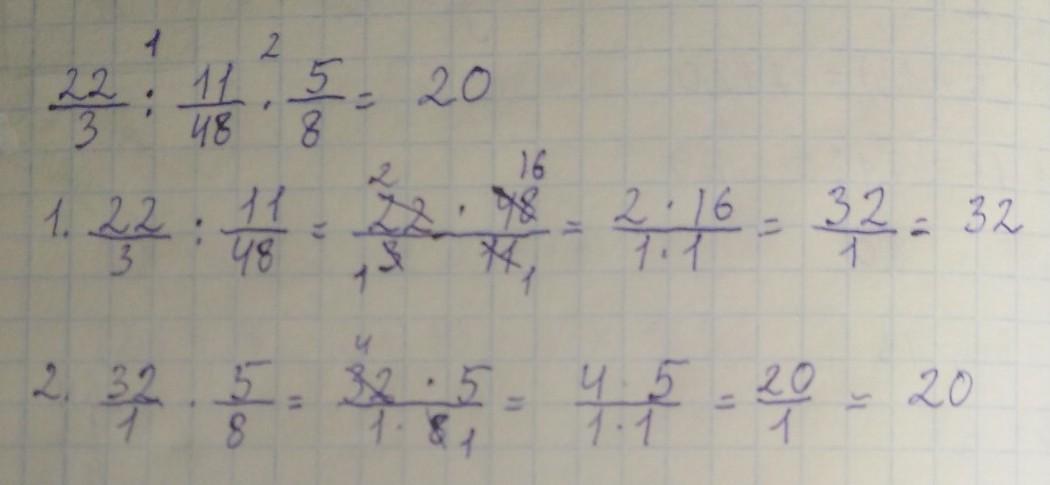 1 2
22/3 : 11/48 · 5/8 = 20
1. 22/3 : 11/48 = 22 · 48 / 3 · 11 (2 16 1 1) = 2 · 16 / 1 · 1 = 32/1 = 32
2. 32/1 · 5/8 = 32 · 5 / 1 · 8 (4 1) = 4 · 5 / 1 · 1 = 20/1 = 20